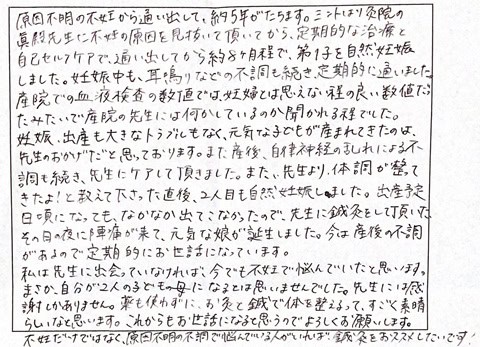 原因不明の不妊から通い出して、約5年がたちます。ミントはり灸院の
眞鍋先生に不妊の原因を見抜いて頂いてから、定期的な治療と
自己セルフケアで、通い出してから約8ヶ月程で、第1子を自然妊娠
しました。妊娠中も、耳鳴りなどの不調も続き、定期的に通いました。
産院での血液検査の数値では、妊婦とは思えない程の良い数値だっ
たみたいで産院の先生には何かしているのか聞かれる程でした。
妊娠、出産も大きなトラブルもなく、元気な子どもが産まれてきたのは、
先生のおかげだと思っております。また産後、自律神経の乱れによる不
調も続き、先生にケアして頂きました。また、先生より、体調が整っ
てきたよ!と教えて下さった直後、2人目も自然妊娠しました。出産予定
日頃になっても、なかなか出てこなかったので、先生に鍼灸をして頂いた
その日の夜に陣痛が来て、元気な娘が誕生しました。今は産後の不調
があるので定期的にお世話になっています。
私は先生に出会っていなければ、今でも不妊で悩んでいたと思います。
まさか、自分が2人の子どもの母になるとは思いませんでした。先生には感
謝しかありません。薬も使わずに、お灸と鍼で体を整えるって、すごく素晴
らしいなと思います。これからもお世話になると思うのでよろしくお願いします。
不妊だけではなく、原因不明の不調で悩んでいる人がいれば、鍼灸をおススメしたいです!